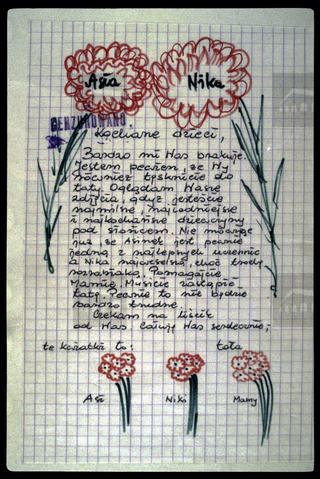 Asia Nika
CENZUROWANO
Kochane dzieci,
Bardzo mi Was brakuje.
Jestem pewien, że Wy
również tęsknicie do
taty. Oglądam Wasze
zdjęcia, gdyż jesteście
najmilsze, najładniejsze
i najkochańsze
pod słońcem. Nie mówiąc
już, że Asinek jest pewnie
jedną z najlepszych uczennic
a Nika najweselsza, choć trochę
rozrabiaka. Pomagajcie
Mamie. Musicie zastąpić
tatę. Pewnie to nie będzie
bardzo trudne.
Czekam na liścik
od Was. Całuję Was serdecznie,
te kwiatki to: tata
Asi Niki Mamy